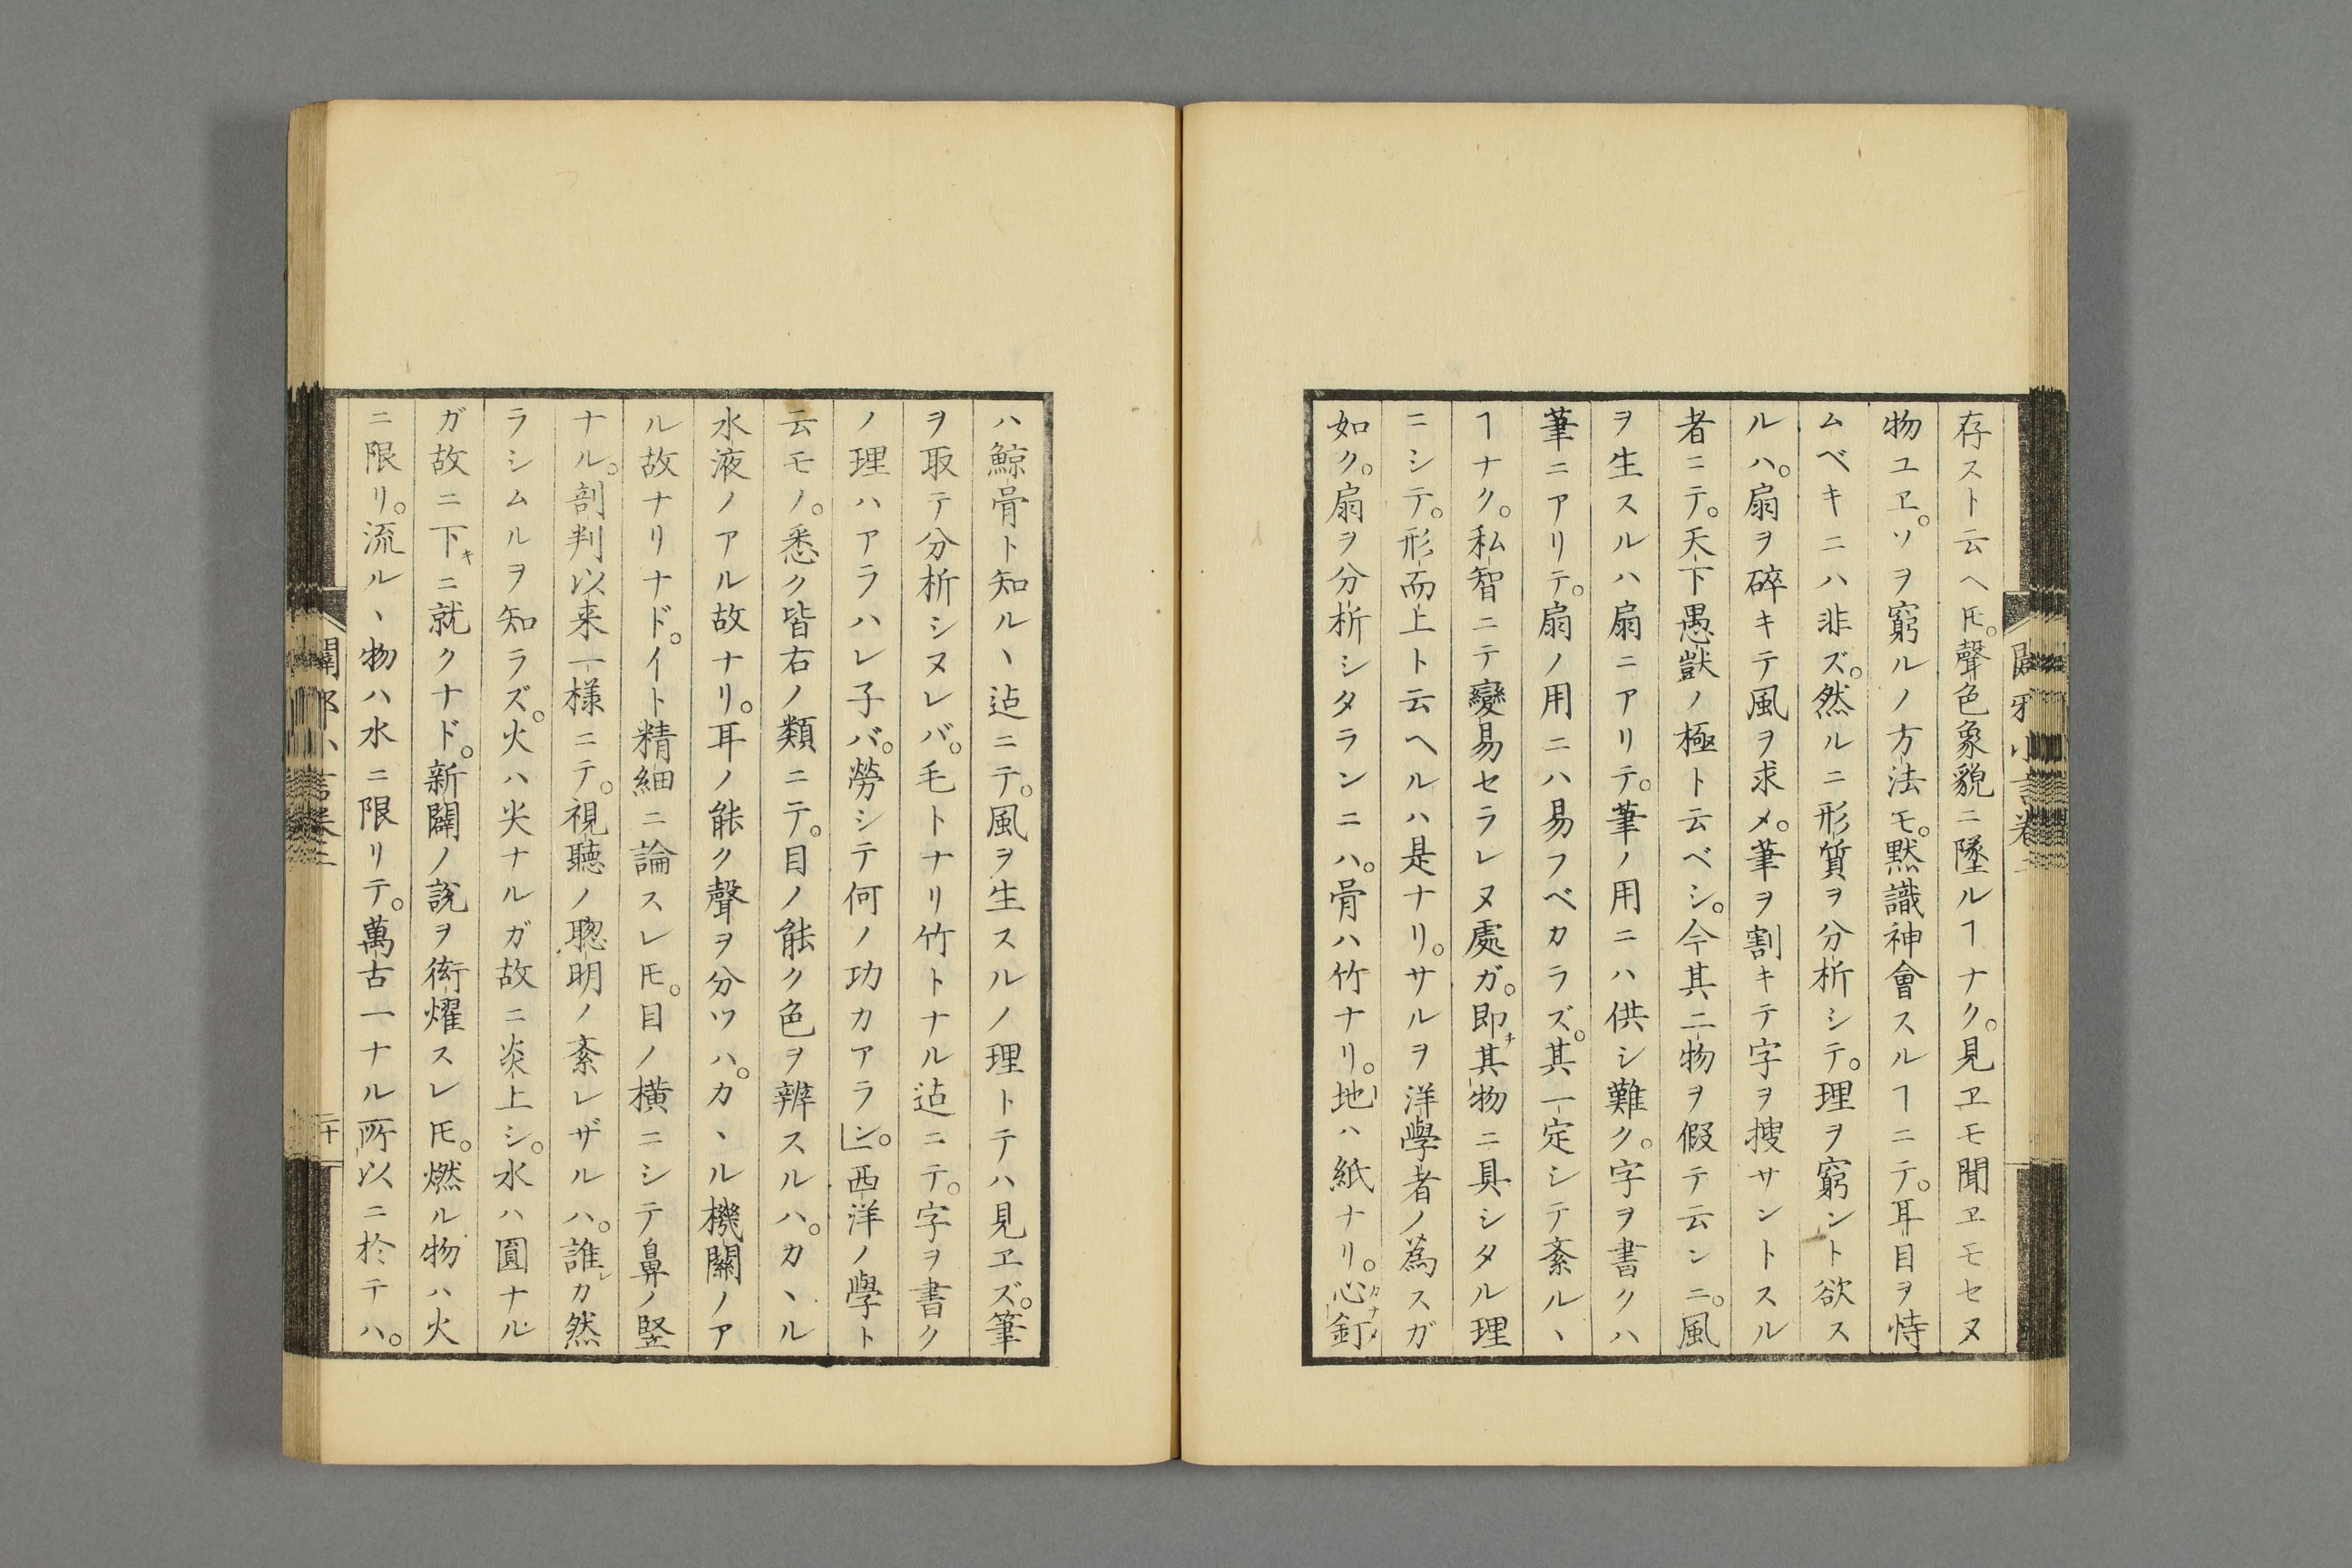 存スト云ヘ𪜈。聲色象貌ニ墜ルヿナク。見ヱモ聞ヱモセヌ
物ユヱ。ソヲ窮ルノ方法モ。黙識神會スルヿニテ。耳目ヲ恃
ムベキニハ非ズ。然ルニ形質ヲ分析シテ。理ヲ窮ント欲ス
ルハ。扇ヲ碎キテ風ヲ求メ。筆ヲ割キテ字ヲ搜サントスル
者ニテ。天下愚獃ノ極ト云ベシ。今其二物ヲ假テ云ンニ。風
ヲ生スルハ扇ニアリテ。筆ノ用ニハ供シ難ク。字ヲ書クハ
筆ニアリテ。扇ノ用ニハ易フベカラズ。其一定シテ紊ルヽ
ヿナク。私智ニテ變易セラレヌ處ガ。即キ其物ニ具シタル理
ニシテ。形而上ト云ヘルハ是ナリ。サルヲ洋學者ノ爲スガ
如ク。扇ヲ分析シタランニハ。骨ハ竹ナリ。地ハ紙ナリ。心釘カナメ
ハ鯨骨ト知ルヽ迠ニテ。風ヲ生スルノ理トテハ見ヱズ。筆
ヲ取テ分析シヌレバ。毛トナリ竹トナル迠ニテ。字ヲ書ク
ノ理ハアラハレ子バ。勞シテ何ノ功カアラン。」西洋ノ學ト
云モノ。悉ク皆右ノ類ニテ。目ノ能ク色ヲ辨スルハ。カヽル
水液ノアル故ナリ。耳ノ能ク聲ヲ分ツハ。カヽル機關ノア
ル故ナリナド。イト精細ニ論スレ𪜈。目ノ横ニシテ鼻ノ竪
ナル。剖判以来一様ニテ。視聽ノ聰明ノ紊レザルハ。誰レカ然
ラシムルヲ知ラズ。火ハ尖ナルガ故ニ炎上シ。水ハ圓ナル
ガ故ニ下キニ就クナド。新闢ノ説ヲ衒燿スレ𪜈。燃ル物ハ火
ニ限リ。流ルヽ物ハ水ニ限リテ。萬古一ナル所以ニ於テハ。